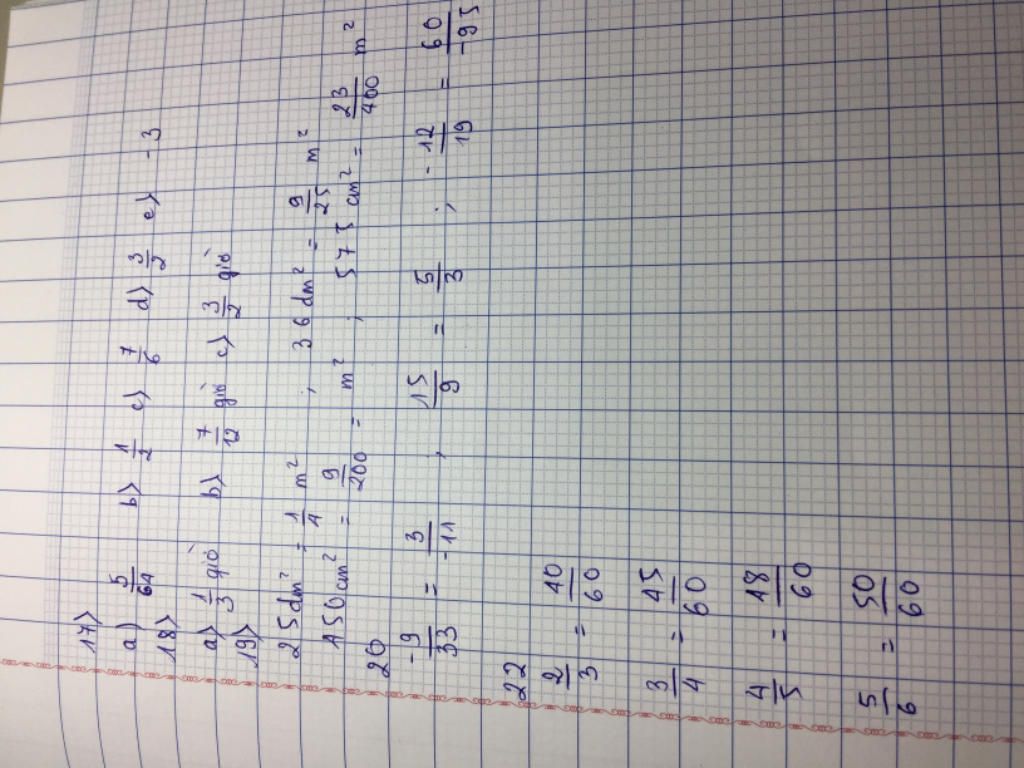 17>
a) 5/64 b) 1/2 c) 7/6 d) 3/2 e) -3
18>
a) 1/3 giờ b) 7/12 giờ c) 3/2 giờ
19>
25dm² = 1/4 m² , 36 dm² = 9/25 m²
450cm² = 9/200 = m² ; 575 cm² = 23/400 m²
20
-9/33 = 3/-11 , 15/9 = 5/3 ; -12/19 = 60/-95
22
2/3 = 40/60
3/4 = 45/60
4/5 = 48/60
5/6 = 50/60